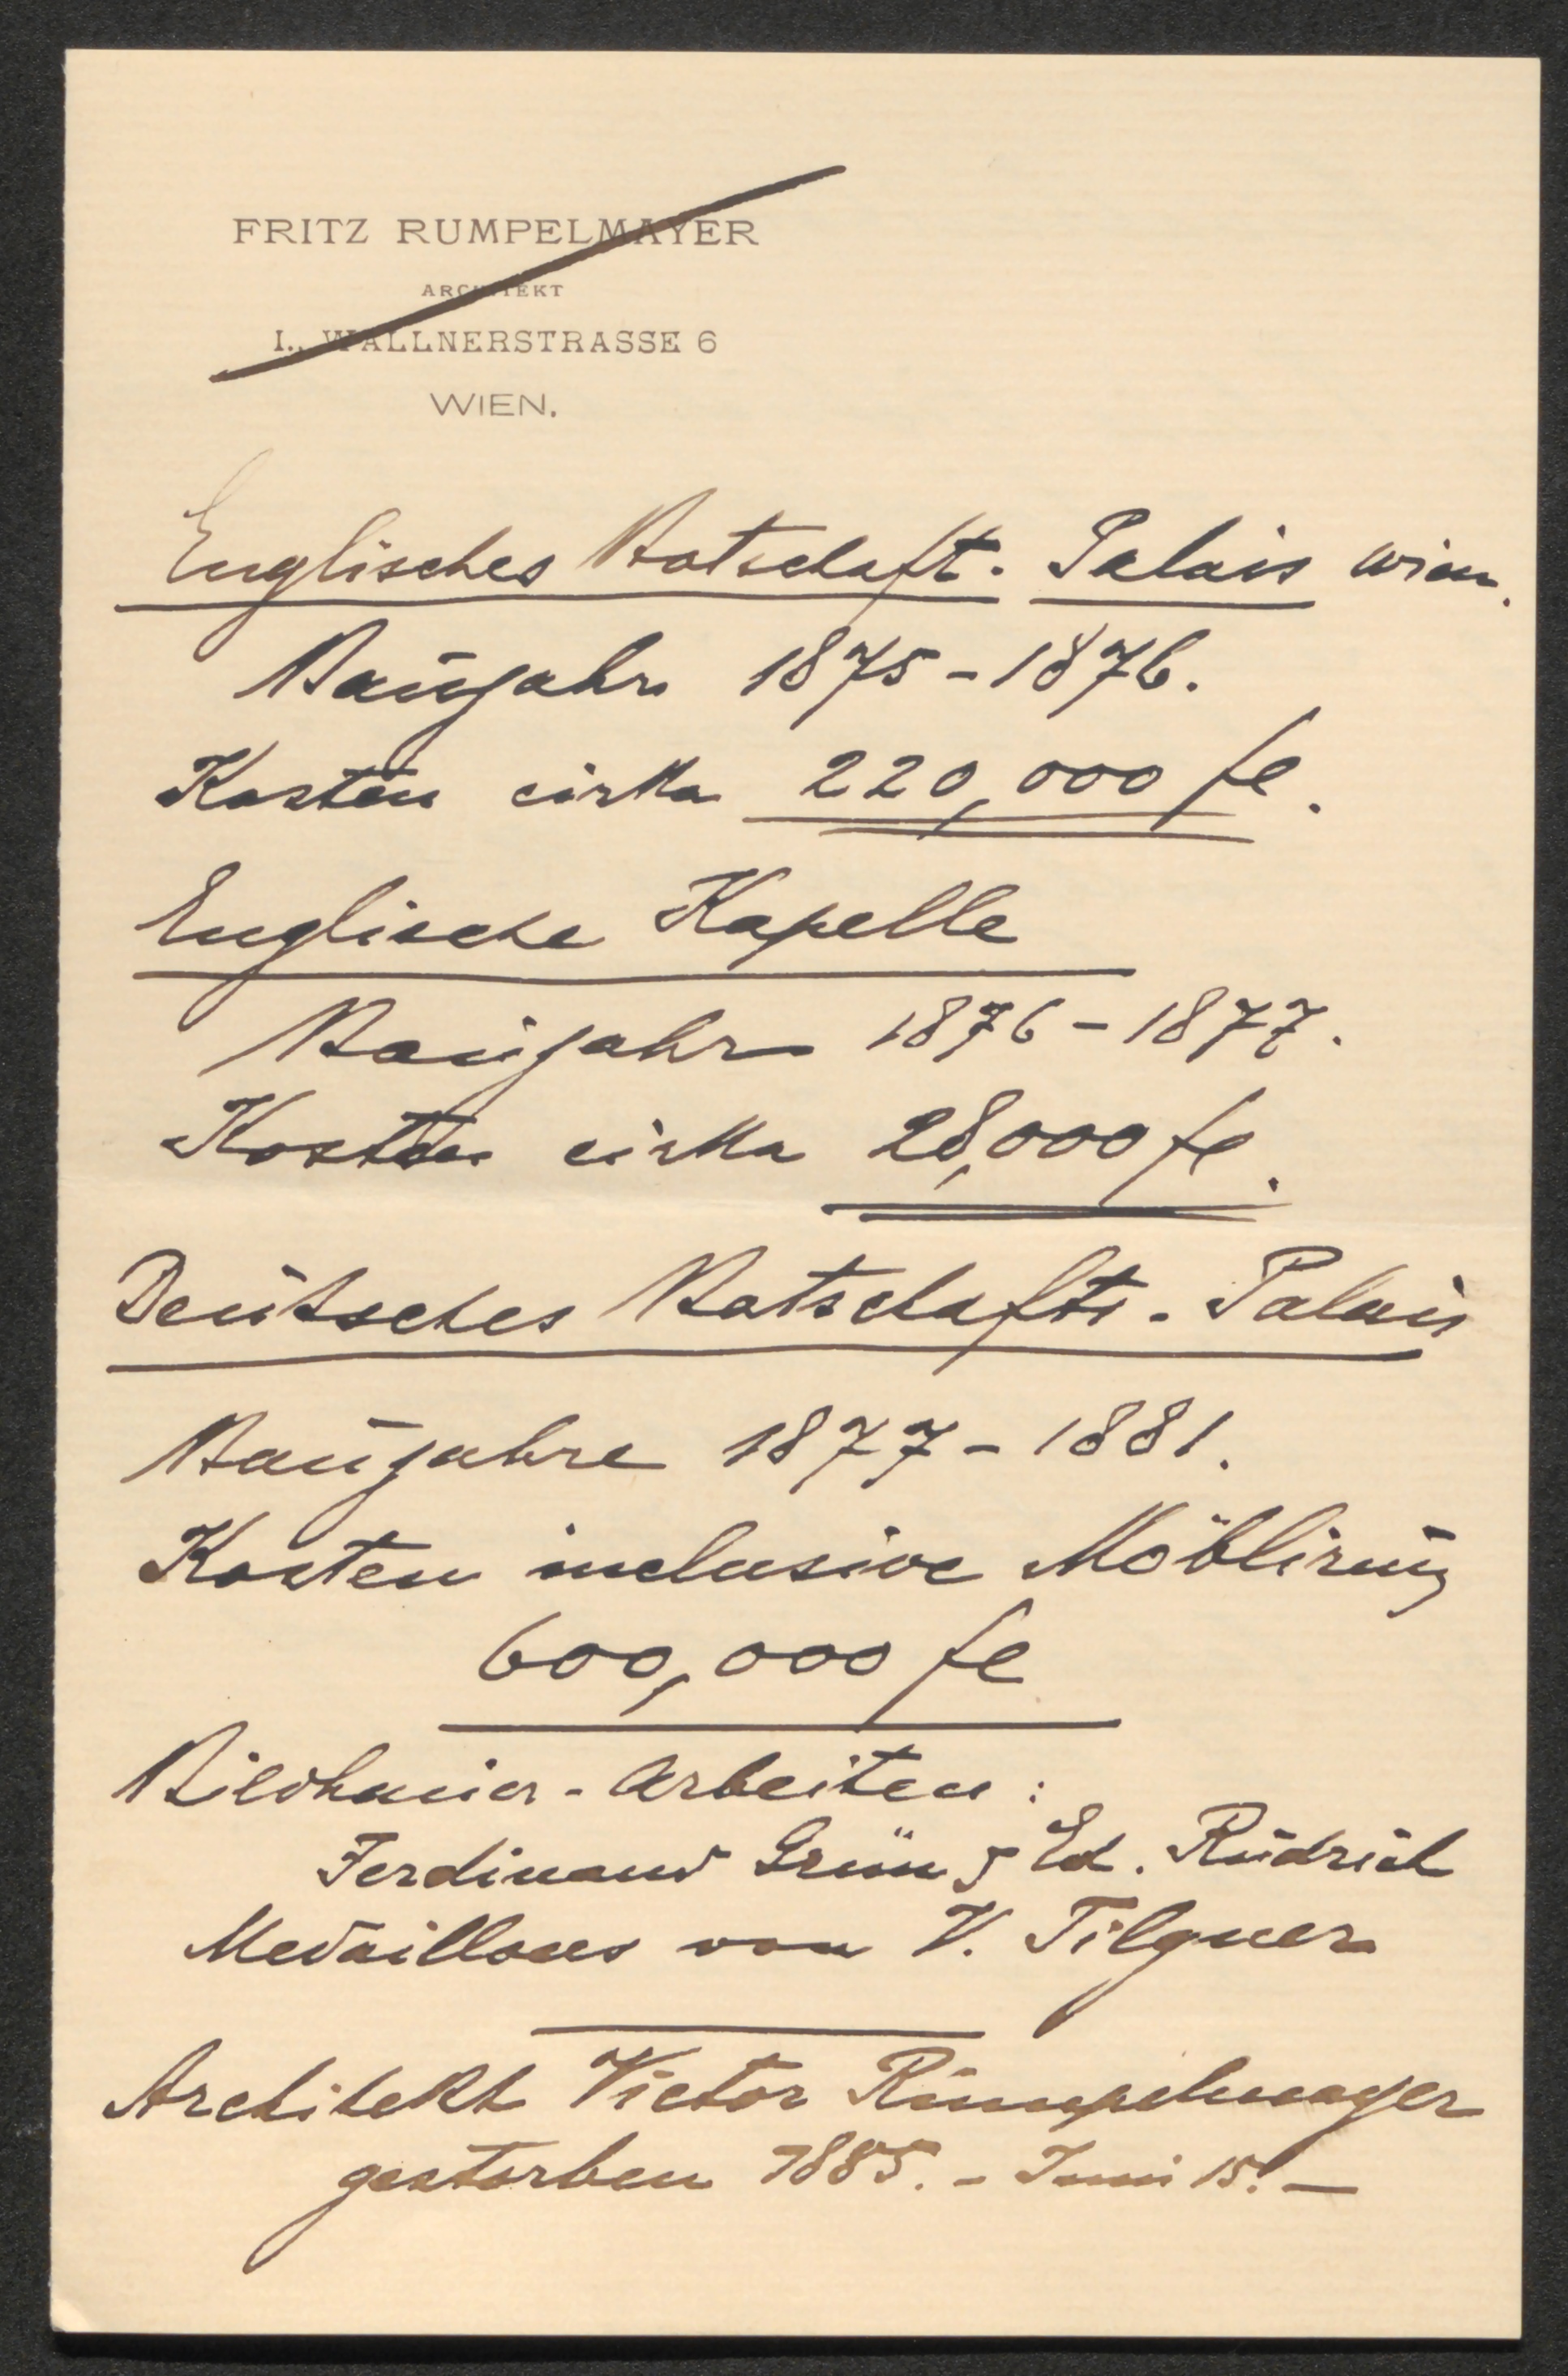 FRITZ RUMPELMAYER
ARCHITEKT
I., WALLNERSTRASSE 6
WIEN.
Englisches Botschaft. Palais Wien.
Baujahr 1875-1876.
Kosten cirka 220,000 fl.
Englische Kapelle
Baujahr 1876-1877.
Kosten cirka 28,000 fl.
Deutsches Botschafts-Palais
Baujahre 1877-1881.
Kosten inclusive Möblirung
600,000 fl
Bildhauer-Arbeiten:
Ferdinand Grün & Ed. Rudrich
Medaillons von V. Tilgner
Architekt Victor Rumpelmayer
gestorben 1885.- Juni 15. -